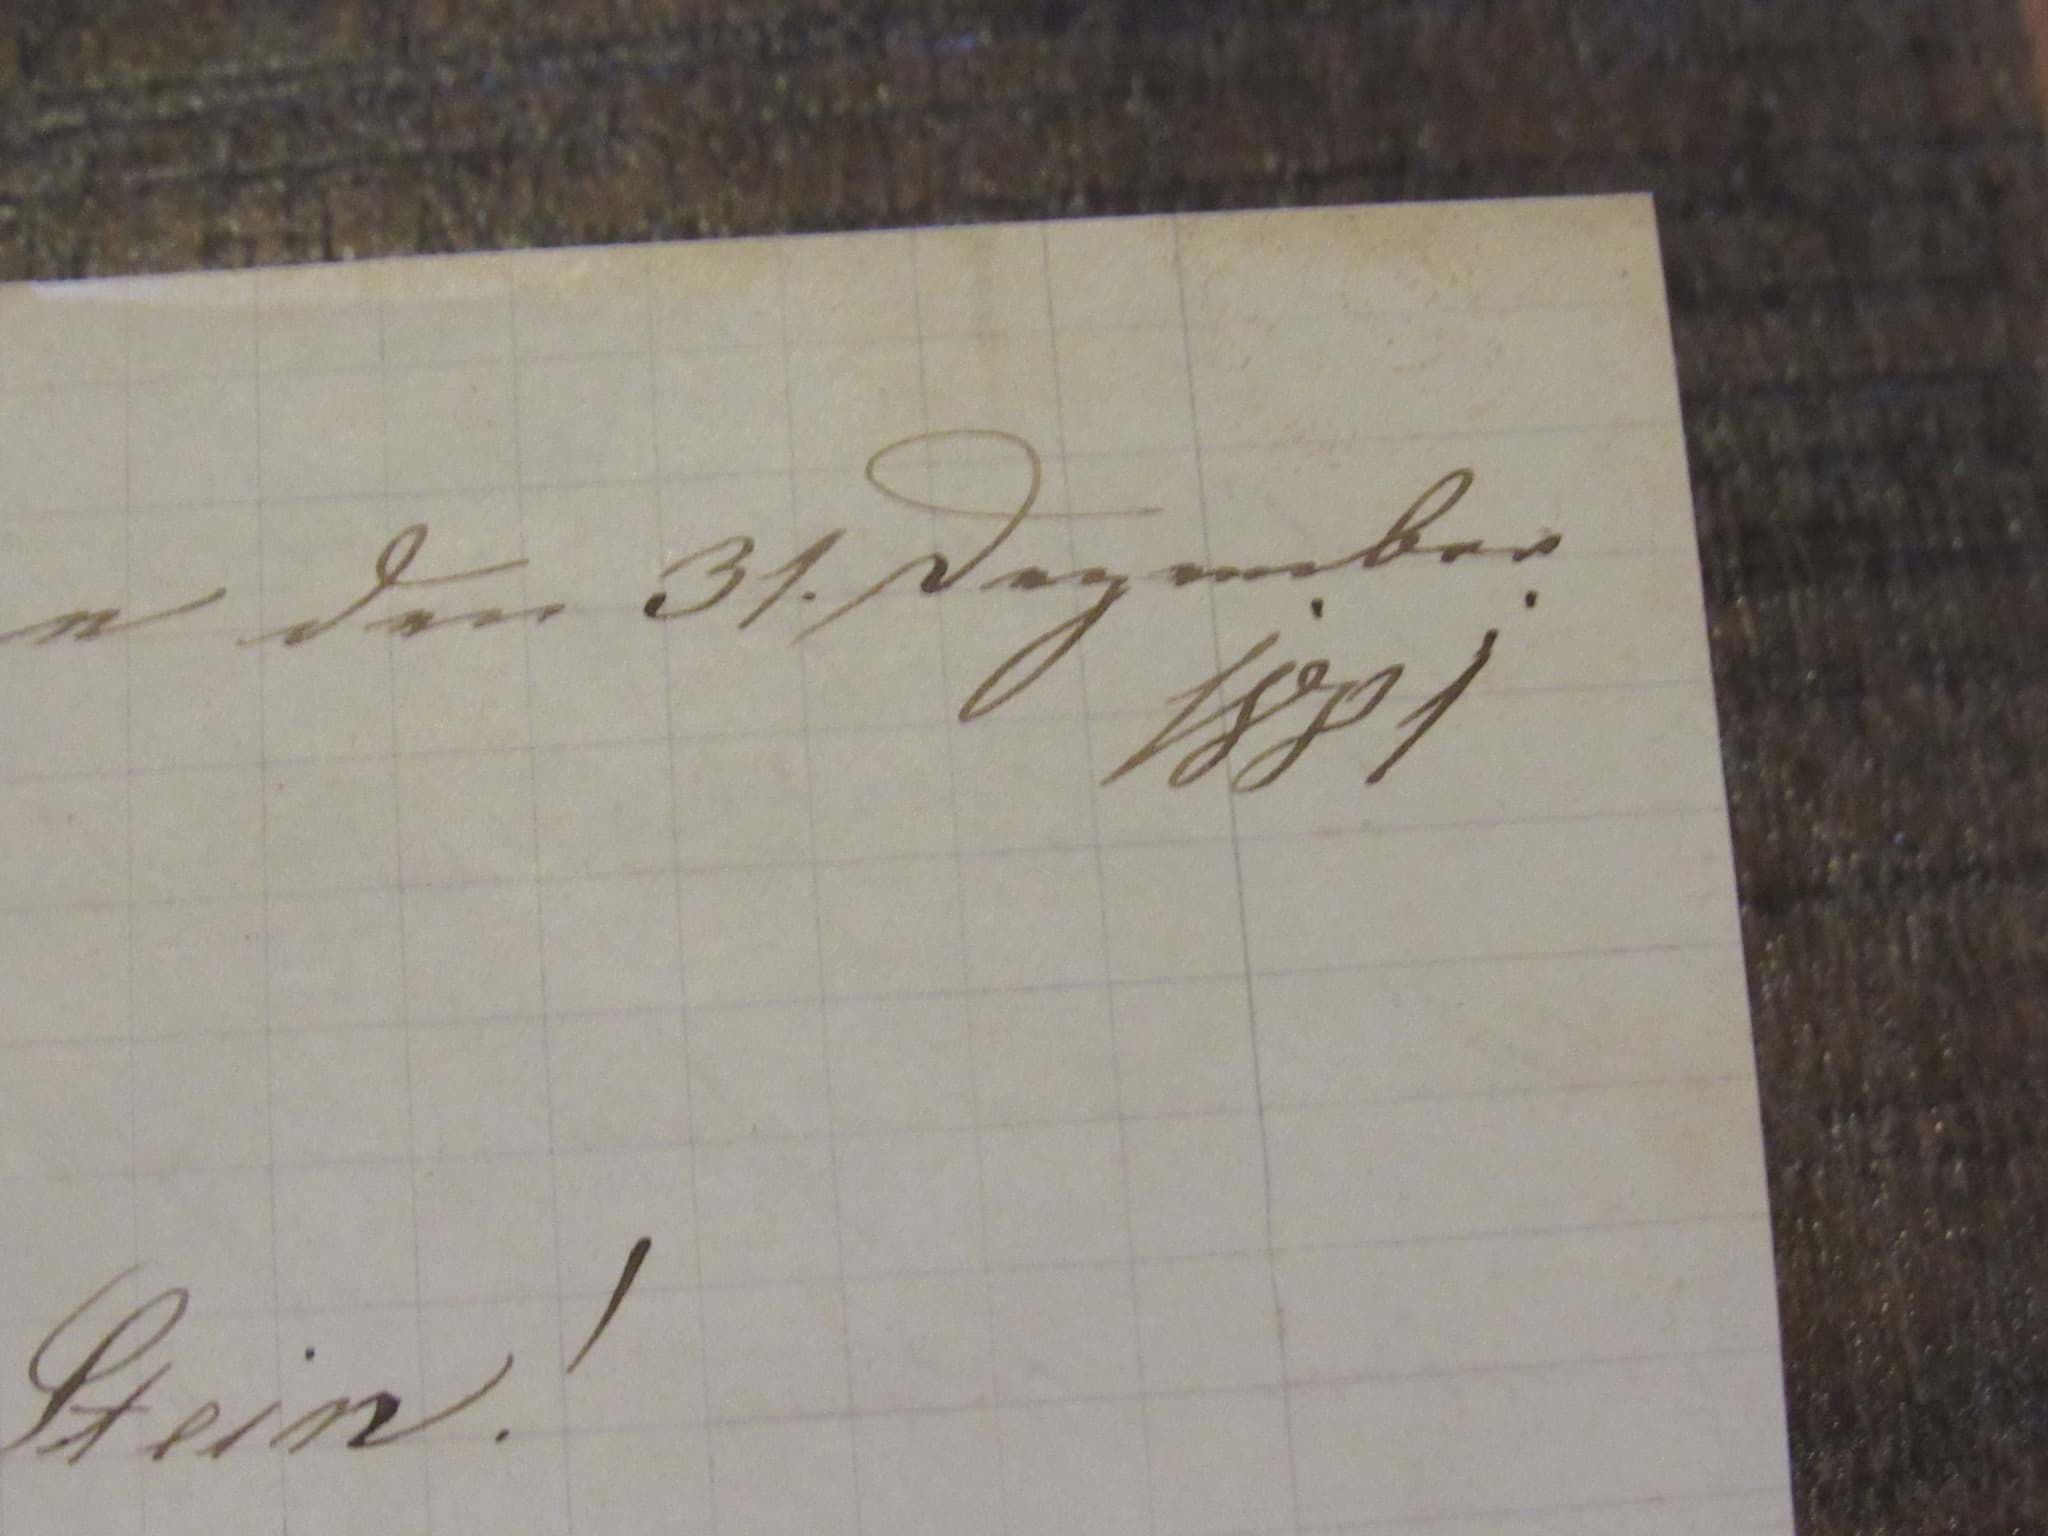 n den 31. Dezember
1881
Stein!